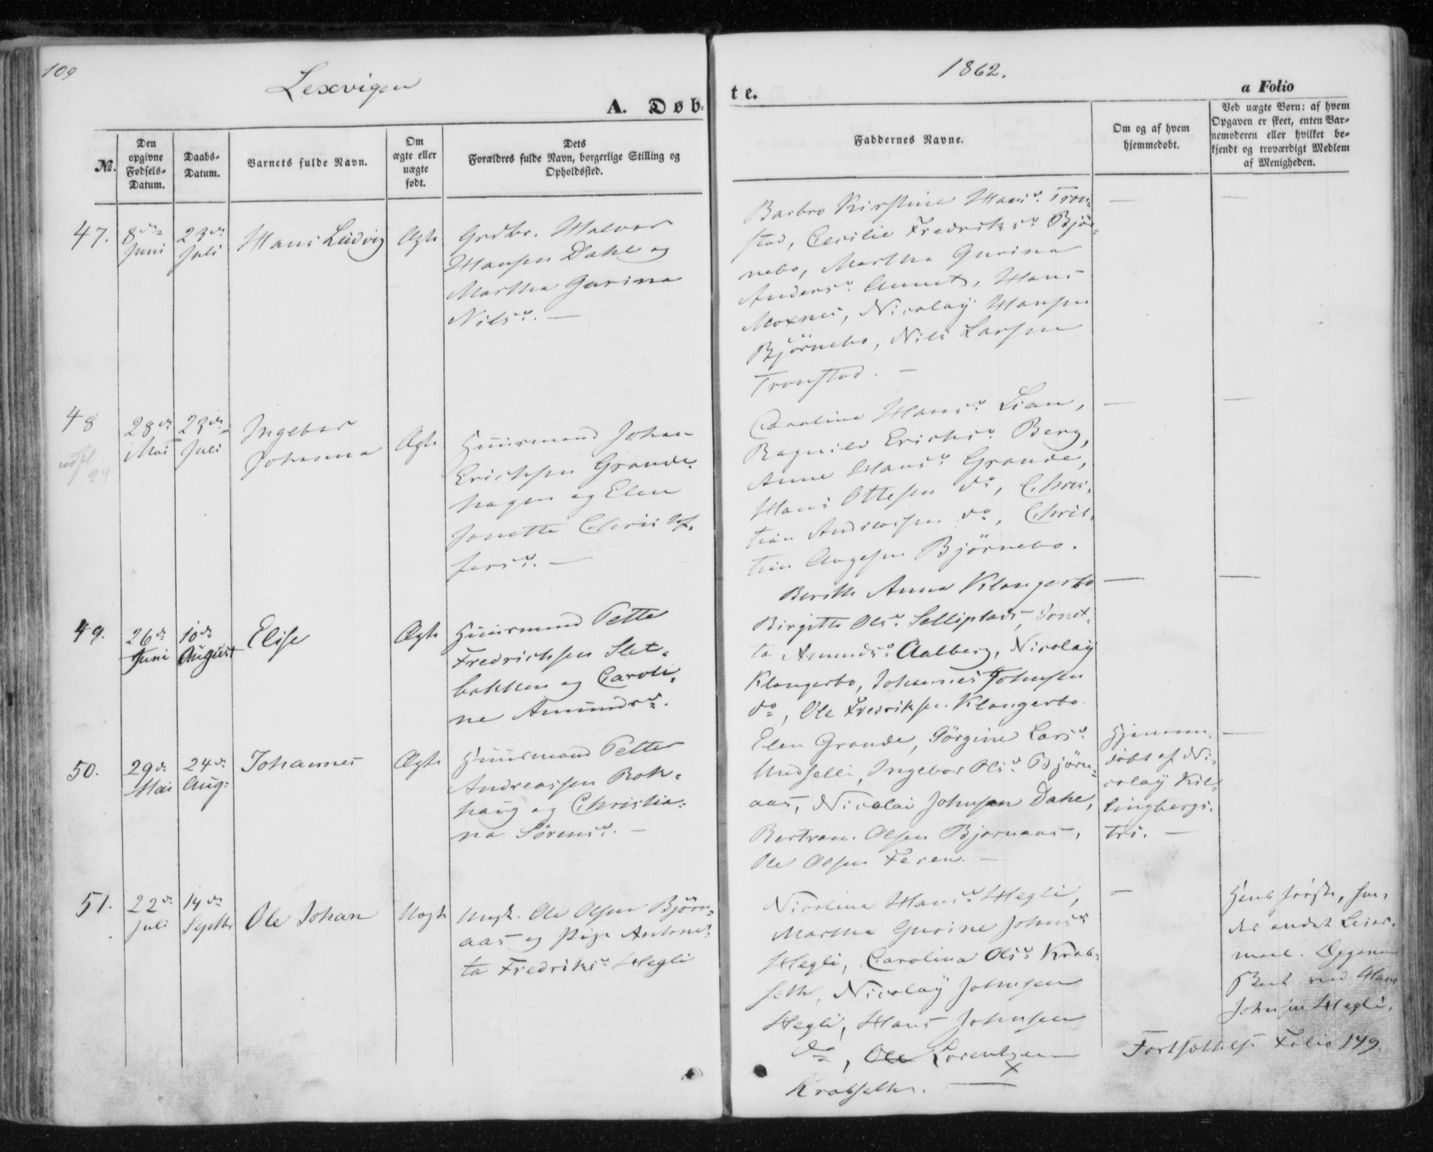 109
Lexvigen
1862.
A. Døb-
te.
a Folio
No.
Den opgivne Fødsels-Datum.
Daabs-Datum.
Barnets fulde Navn.
Om ægte eller uægte født.
Dets Forældres fulde Navn, borgerlige Stilling og Opholdssted.
Faddernes Navne.
Om og af hvem hjemmedøbt.
Ved uægte Børn: af hvem Opgaven er skeet, enten Bar-nemoderen eller hvilket be-kjendt og troværdigt Medlem af Menigheden.
47.
8de Juni
23de Juli
Hans Ludvig
Ægte
Grdbr. Halvor
Hansen Dahl og
Martha Gurina
Nilsd. —
Barbro Kirstine Hansd. Tron-
stad, Cecilie Fredriksd. Bjør-
nebo, Martha Gurina
Andersd. Aunet, Hans
Moxnes, Nicolay Hansen
Bjørnebo, Nils Larsen
Tronstad. —
48
28de Mai
23de Juli
Ingebor
Johanna
Ægte
Huusmand Johan
Erichsen Grande-
hagen og Elen
Jonetta Christof-
fersd. —
Carolina Hansd. Lian,
Ragnild Erichsd. Berg,
Anne Hansd. Grande,
Hans Ottesen do, Chris-
tian Andreassen do, Chris-
tian Aagesen Bjørnebo.
49.
26de Juni
10de August
Elise
Ægte
Huusmand Petter
Fredrichsen Slet-
bakken og Caroli-
ne Amundsd.
Berith Anna Klangerbo
Birgitte Olsd. Selliplads, Jonet-
ta Amundsd. Aalberg, Nicolay
Klangerbo, Johannes Johnsen
do, Ole Fredriksen Klangerbo.
50.
29de Mai
24de Aug:
Johannes
Ægte
Huusmand Petter
Andreassen Rok-
haug og Christia-
na Sørensd. —
Elen Grande, Jørgine Larsd.
Hindselli, Ingebor Olsd. Bjørn-
aas, Nicolai Johnsen Dahl,
Bertran. Olsen Bjørnaas,
Ole Olsen Feren. —
Hjemme-
døbt af Ni-
colay Kil-
lingbergs-
tri. —
51.
22de Juli
14de Septbr
Ole Johan
Uægte
Ungk. Ole Olsen Bjørn-
aas og Pige Antonet-
ta Fredriksd. Hegli
Nicolina Hansd. Hegli,
Martha Gurine Johnsd.
Hegli, Carolina Olsd. Krab-
seth, Nicolay Johnsen
Hegli, Hans Johnsen
do, Ole Lorentzen
Krabseth. —
Hans første, hen-
des andet Leier-
maal. Opgaven
skeet ved Hans
Johnsen Hegli.
Fortsættelse Folio 149.